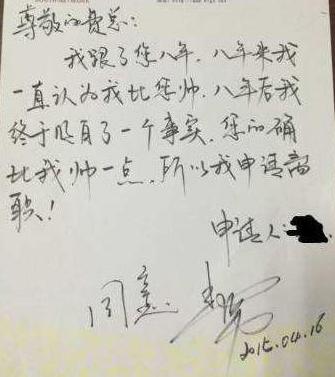 尊敬的费总:
我跟了您八年.八年来我
一直认为我比您帅.八年后我
终于明白了一个事实.您的确
比我帅一点.所以我申请离
职!
申请人:
同意.
2015.04.16